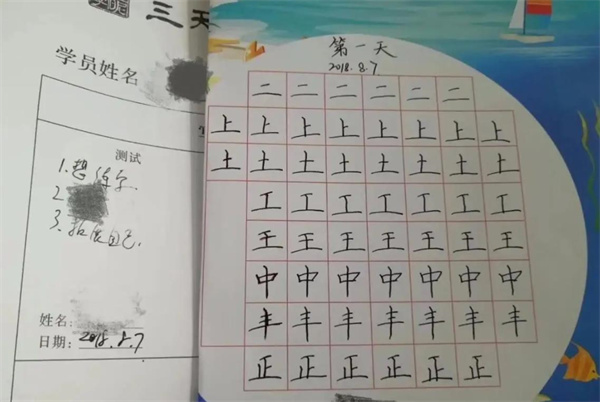 三天
学员姓名
测试
1.想练字.
2
3.自己.
姓名:
日期: 2018.8.7
第一天
2018.8.7
二 二 二 二 二 二
上 上 上 上 上 上 上 上
土 土 土 土 土 土 土 土
工 工 工 工 工 工 工
王 王 王 王 王 王 王
中 中 中 中 中 中 中
丰 丰 丰 丰 丰 丰 丰
正 正 正 正 正 正